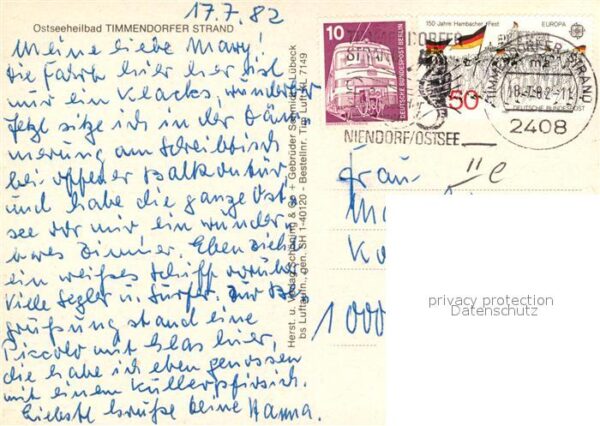 17.7.82
Ostseeheilbad TIMMENDORFER STRAND
Meine liebe Mary!
Die Fahrt hier her ist
nur ein Klacks, wunderbar
Jetzt sitze ich in der Däm-
merung am Schreibtisch
bei offener Balkontür
und habe die ganze Ost-
see vor mir ein wunder-
bares Zimmer. Eben zieht
ein weißes Schiff vorüber
Viele Segler u. Surfer. Zur Be-
grüßung stand eine
Piccolo mit Glas hier,
die habe ich eben genossen
mit einem Kullerpfirsich.
Liebste Grüße deine Hanna.
Herst. u. Verlag Schöning & Co + Gebrüder Schmidt, Lübeck
bs Luftaufn., gen. SH 1-40120 - Bestellnr. Tim Luft Nr. 7149
10
DEUTSCHE BUNDESPOST BERLIN
150 Jahre Hambacher Fest
EUROPA
50
DEUTSCHE BUNDESPOST
TIMMENDORFER
NIENDORF/OSTSEE
TIMMENDORFER STRAND
18.-7.82-11
2408
Frau
1000
privacy protection
Datenschutz